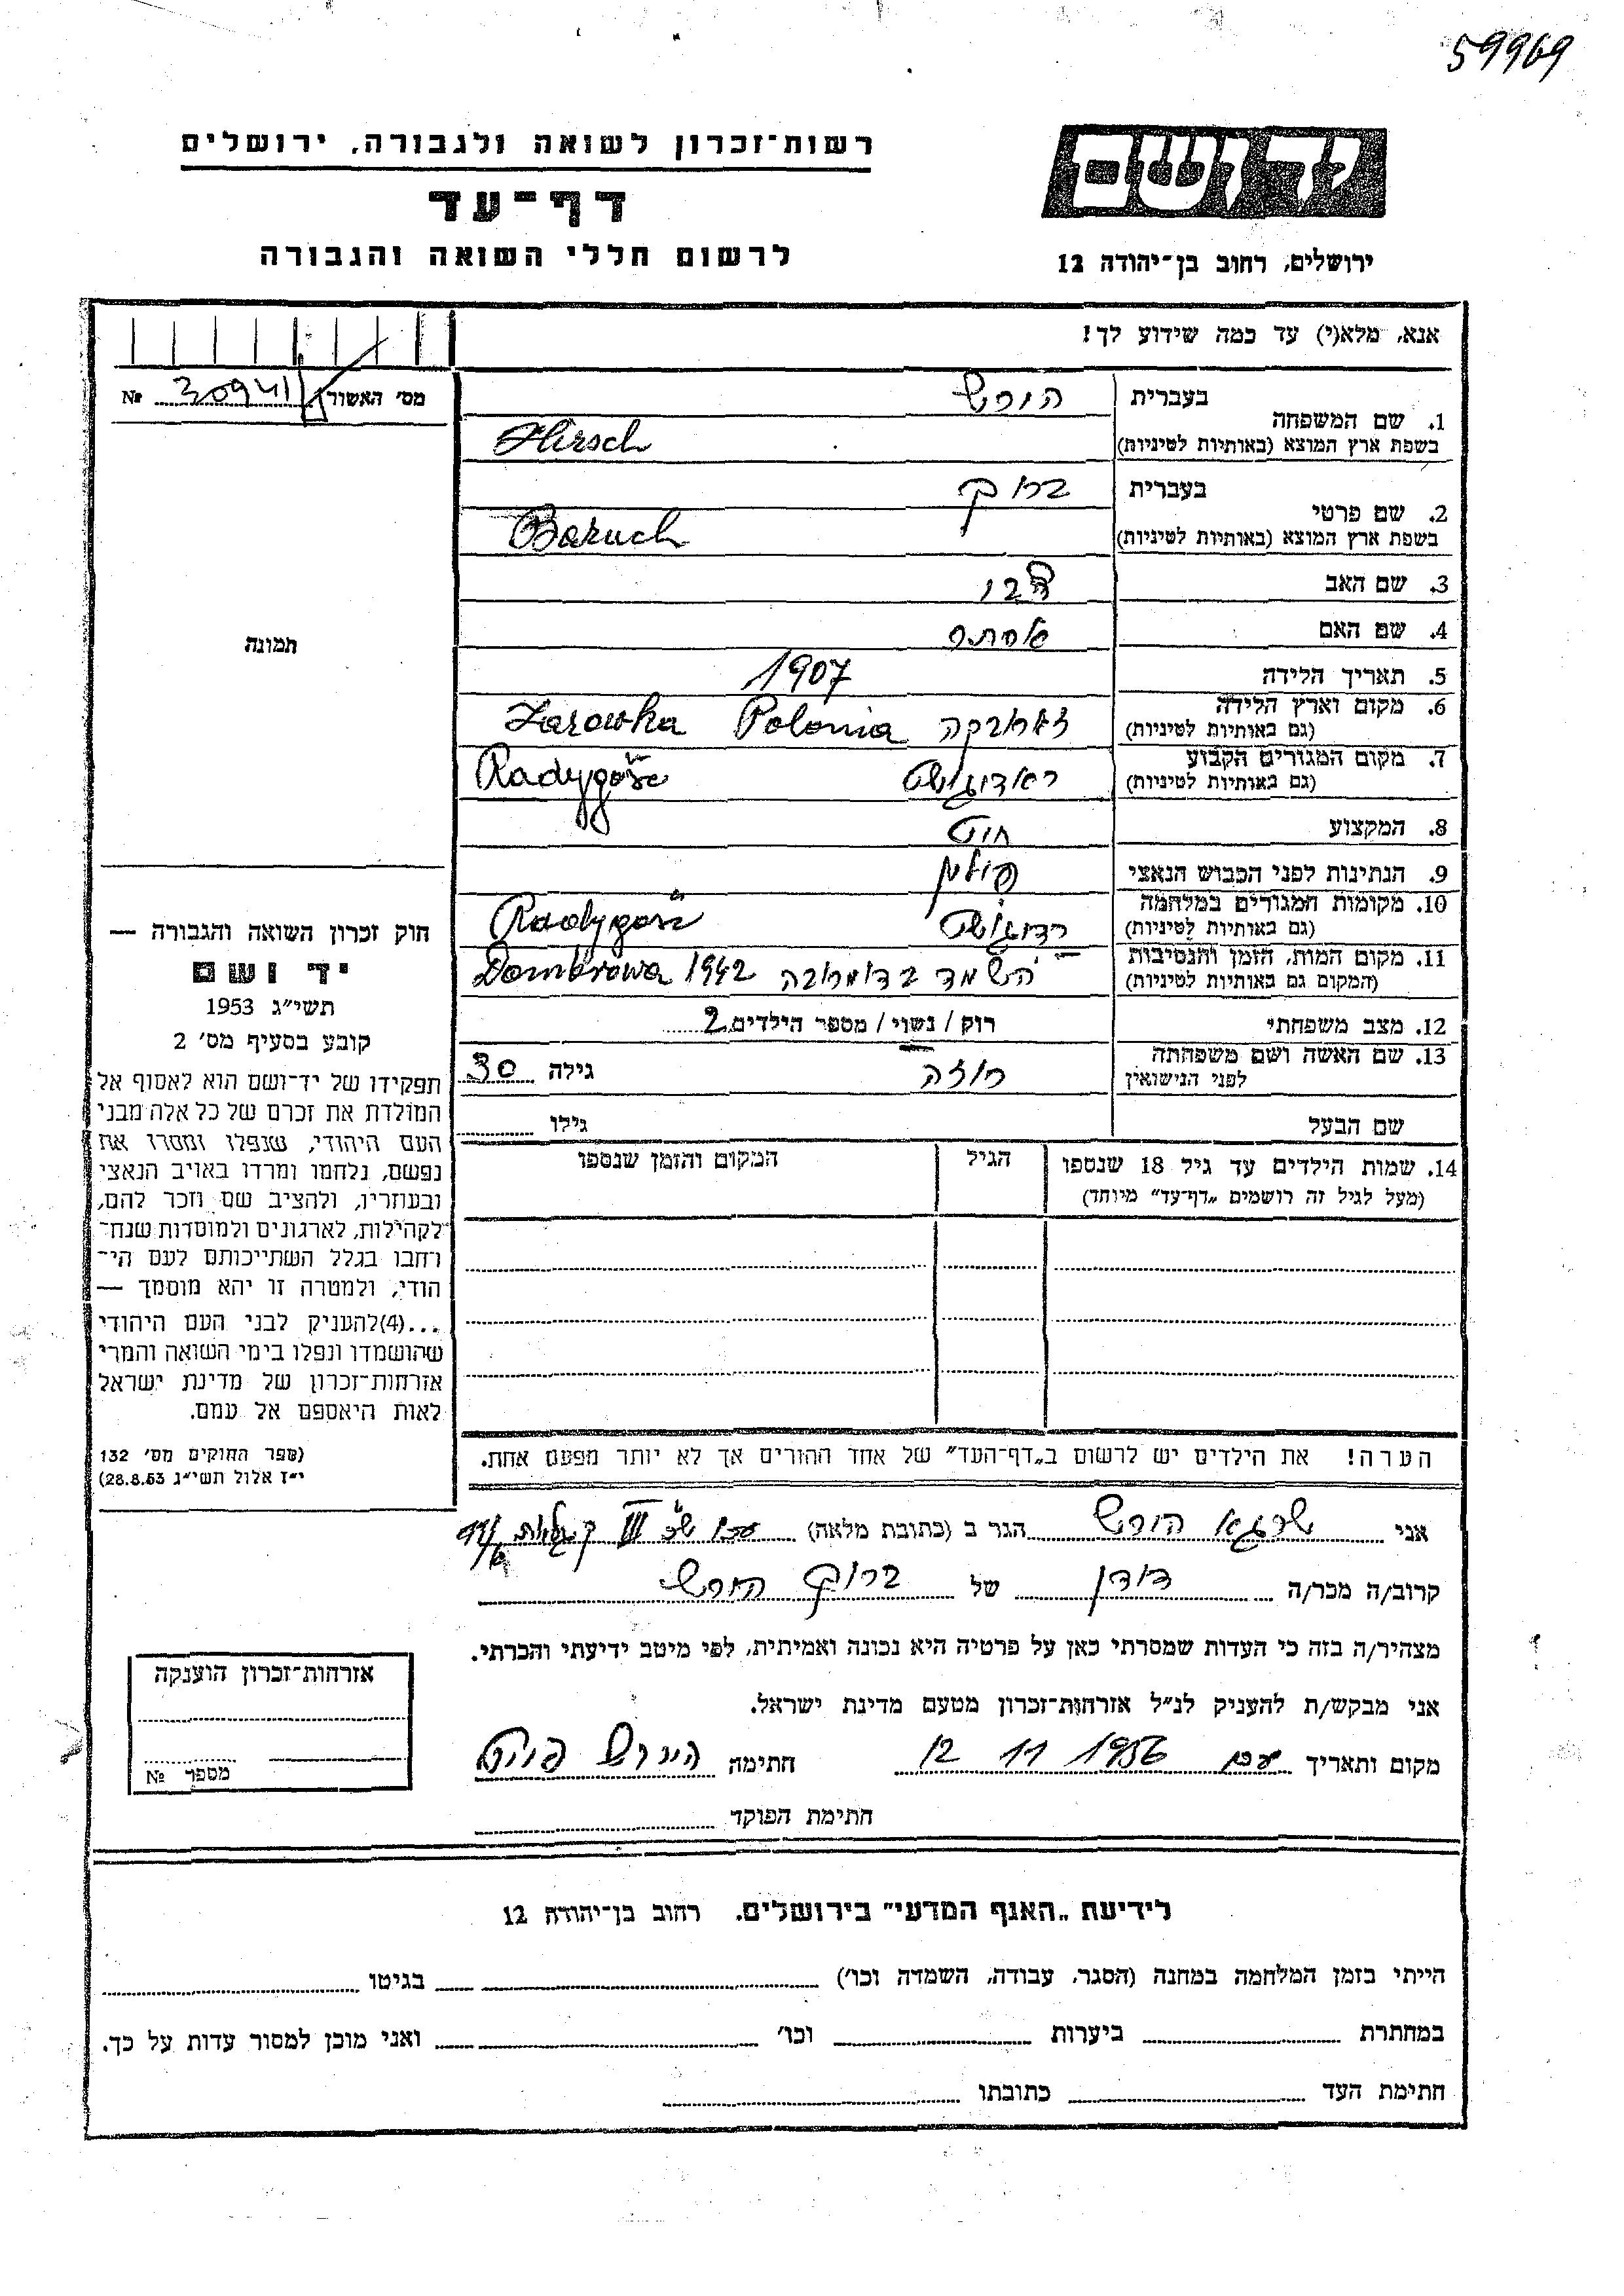 59969
ידושם
רשות־זכרון לשואה ולגבורה, ירושלים
דף־עד
לרשום חללי השואה והגבורה
ירושלים, רחוב בן־יהודה 12
אנא, מלא(י) עד כמה שידוע לך!
מס׳ האשור 30941 №
1. שם המשפחה בעברית הירש
בשפת ארץ המוצא (באותיות לטיניות) Hirsch
2. שם פרטי בעברית ברוך
בשפת ארץ המוצא (באותיות לטיניות) Baruch
3. שם האב
4. שם האם אסתר
5. תאריך הלידה 1907
6. מקום וארץ הלידה Polonia
(גם באותיות לטיניות)
7. מקום המגורים הקבוע
(גם באותיות לטיניות)
8. המקצוע
9. הנתינות לפני הכבוש הנאצי פולין
10. מקומות המגורים במלחמה
(גם באותיות לטיניות)
11. מקום המות, הזמן והנסיבות Dombrowa 1942
(המקום גם באותיות לטיניות)
12. מצב משפחתי רוק / נשוי / מספר הילדים 2
13. שם האשה ושם משפחתה רוזה גילה 30
לפני הנישואין
שם הבעל גילו
14. שמות הילדים עד גיל 18 שנספו הגיל המקום והזמן שנספו
(מעל לגיל זה רושמים „דף־עד״ מיוחד)
הערה! את הילדים יש לרשום ב„דף־העד״ של אחד ההורים אך לא יותר מפעם אחת.
תמונה
חוק זכרון השואה והגבורה —
יד ושם
תשי״ג 1953
קובע בסעיף מס׳ 2
תפקידו של יד־ושם הוא לאסוף אל
המולדת את זכרם של כל אלה מבני
העם היהודי, שנפלו ומסרו את
נפשם, נלחמו ומרדו באויב הנאצי
ובעוזריו, ולהציב שם וזכר להם,
לקהילות, לארגונים ולמוסדות שנח־
רחבו בגלל השתייכותם לעם הי־
הודי, ולמטרה זו יהא מוסמך —
...(4)להעניק לבני העם היהודי
שהושמדו ונפלו בימי השואה והמרי
אזרחות־זכרון של מדינת ישראל
לאות היאספם אל עמם.
(ספר החוקים מס׳ 132
י״ז אלול תשי״ג 28.8.53)
אני שרגא הירש הגר ב (כתובת מלאה)
קרוב/ה מכר/ה דודן של ברוך הירש
מצהיר/ה בזה כי העדות שמסרתי כאן על פרטיה היא נכונה ואמיתית, לפי מיטב ידיעתי והכרתי.
אני מבקש/ת להעניק לנ״ל אזרחות־זכרון מטעם מדינת ישראל.
מקום ותאריך עכו 12 11 1956 חתימה הירש
חתימת הפוקד
אזרחות־זכרון הוענקה
מספר №
לידיעת „האגף המדעי״ בירושלים, רחוב בן־יהודה 12
הייתי בזמן המלחמה במחנה (הסגר, עבודה, השמדה וכו׳) בגיטו
במחתרת ביערות וכו׳ ואני מוכן למסור עדות על כך.
חתימת העד כתובתו